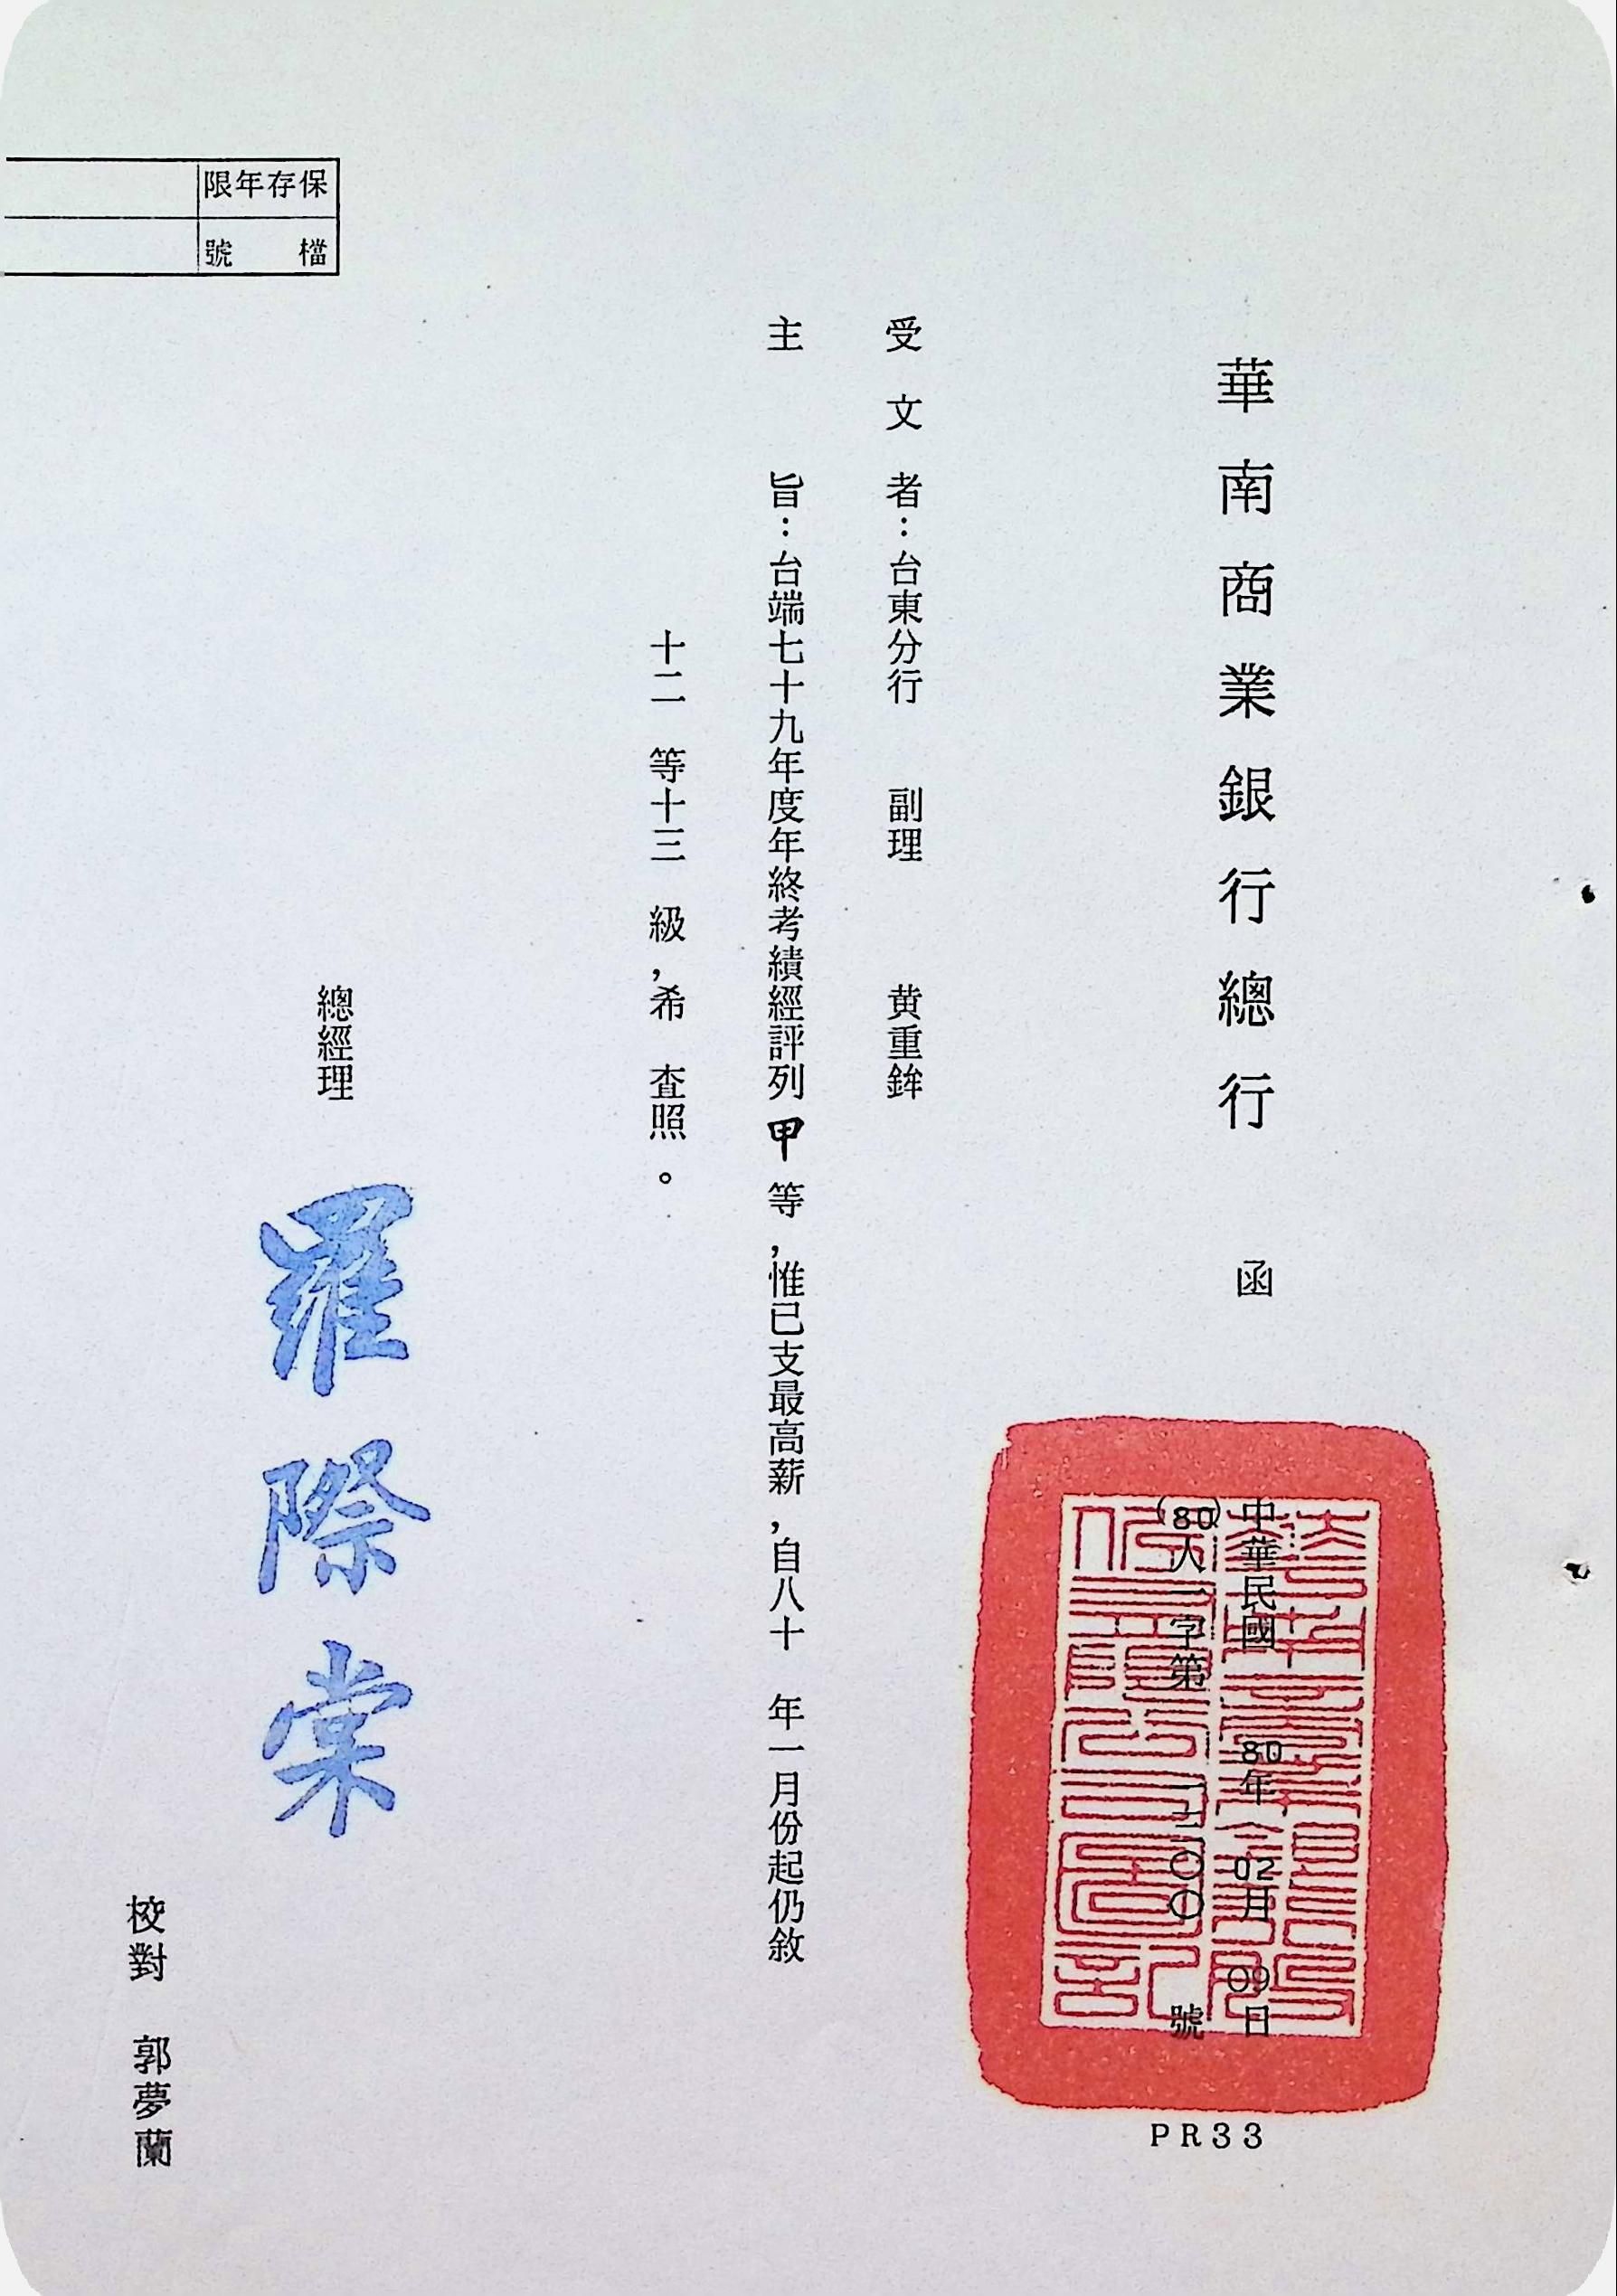 華南商業銀行總行 函
中華民國 80年 02月 09日
(80)人一字第 號
PR33
受文者：台東分行 副理 黄重鉾
主 旨：台端七十九年度年終考績經評列 甲 等，惟已支最高薪，自八十 年一月份起仍敘
十二 等十三 級，希 査照。
總經理 羅際棠
校對 郭夢蘭
保存年限
檔 號